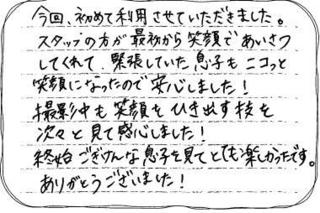 今回、初めて利用させていただきました。
スタッフの方が最初から笑顔であいさつ
してくれて、緊張していた息子もニコっと
笑顔になったので安心しました！
撮影中も笑顔をひき出す技を
次々と見て感心しました！
終始ごきげんな息子を見てとても楽しかったです。
ありがとうございました！